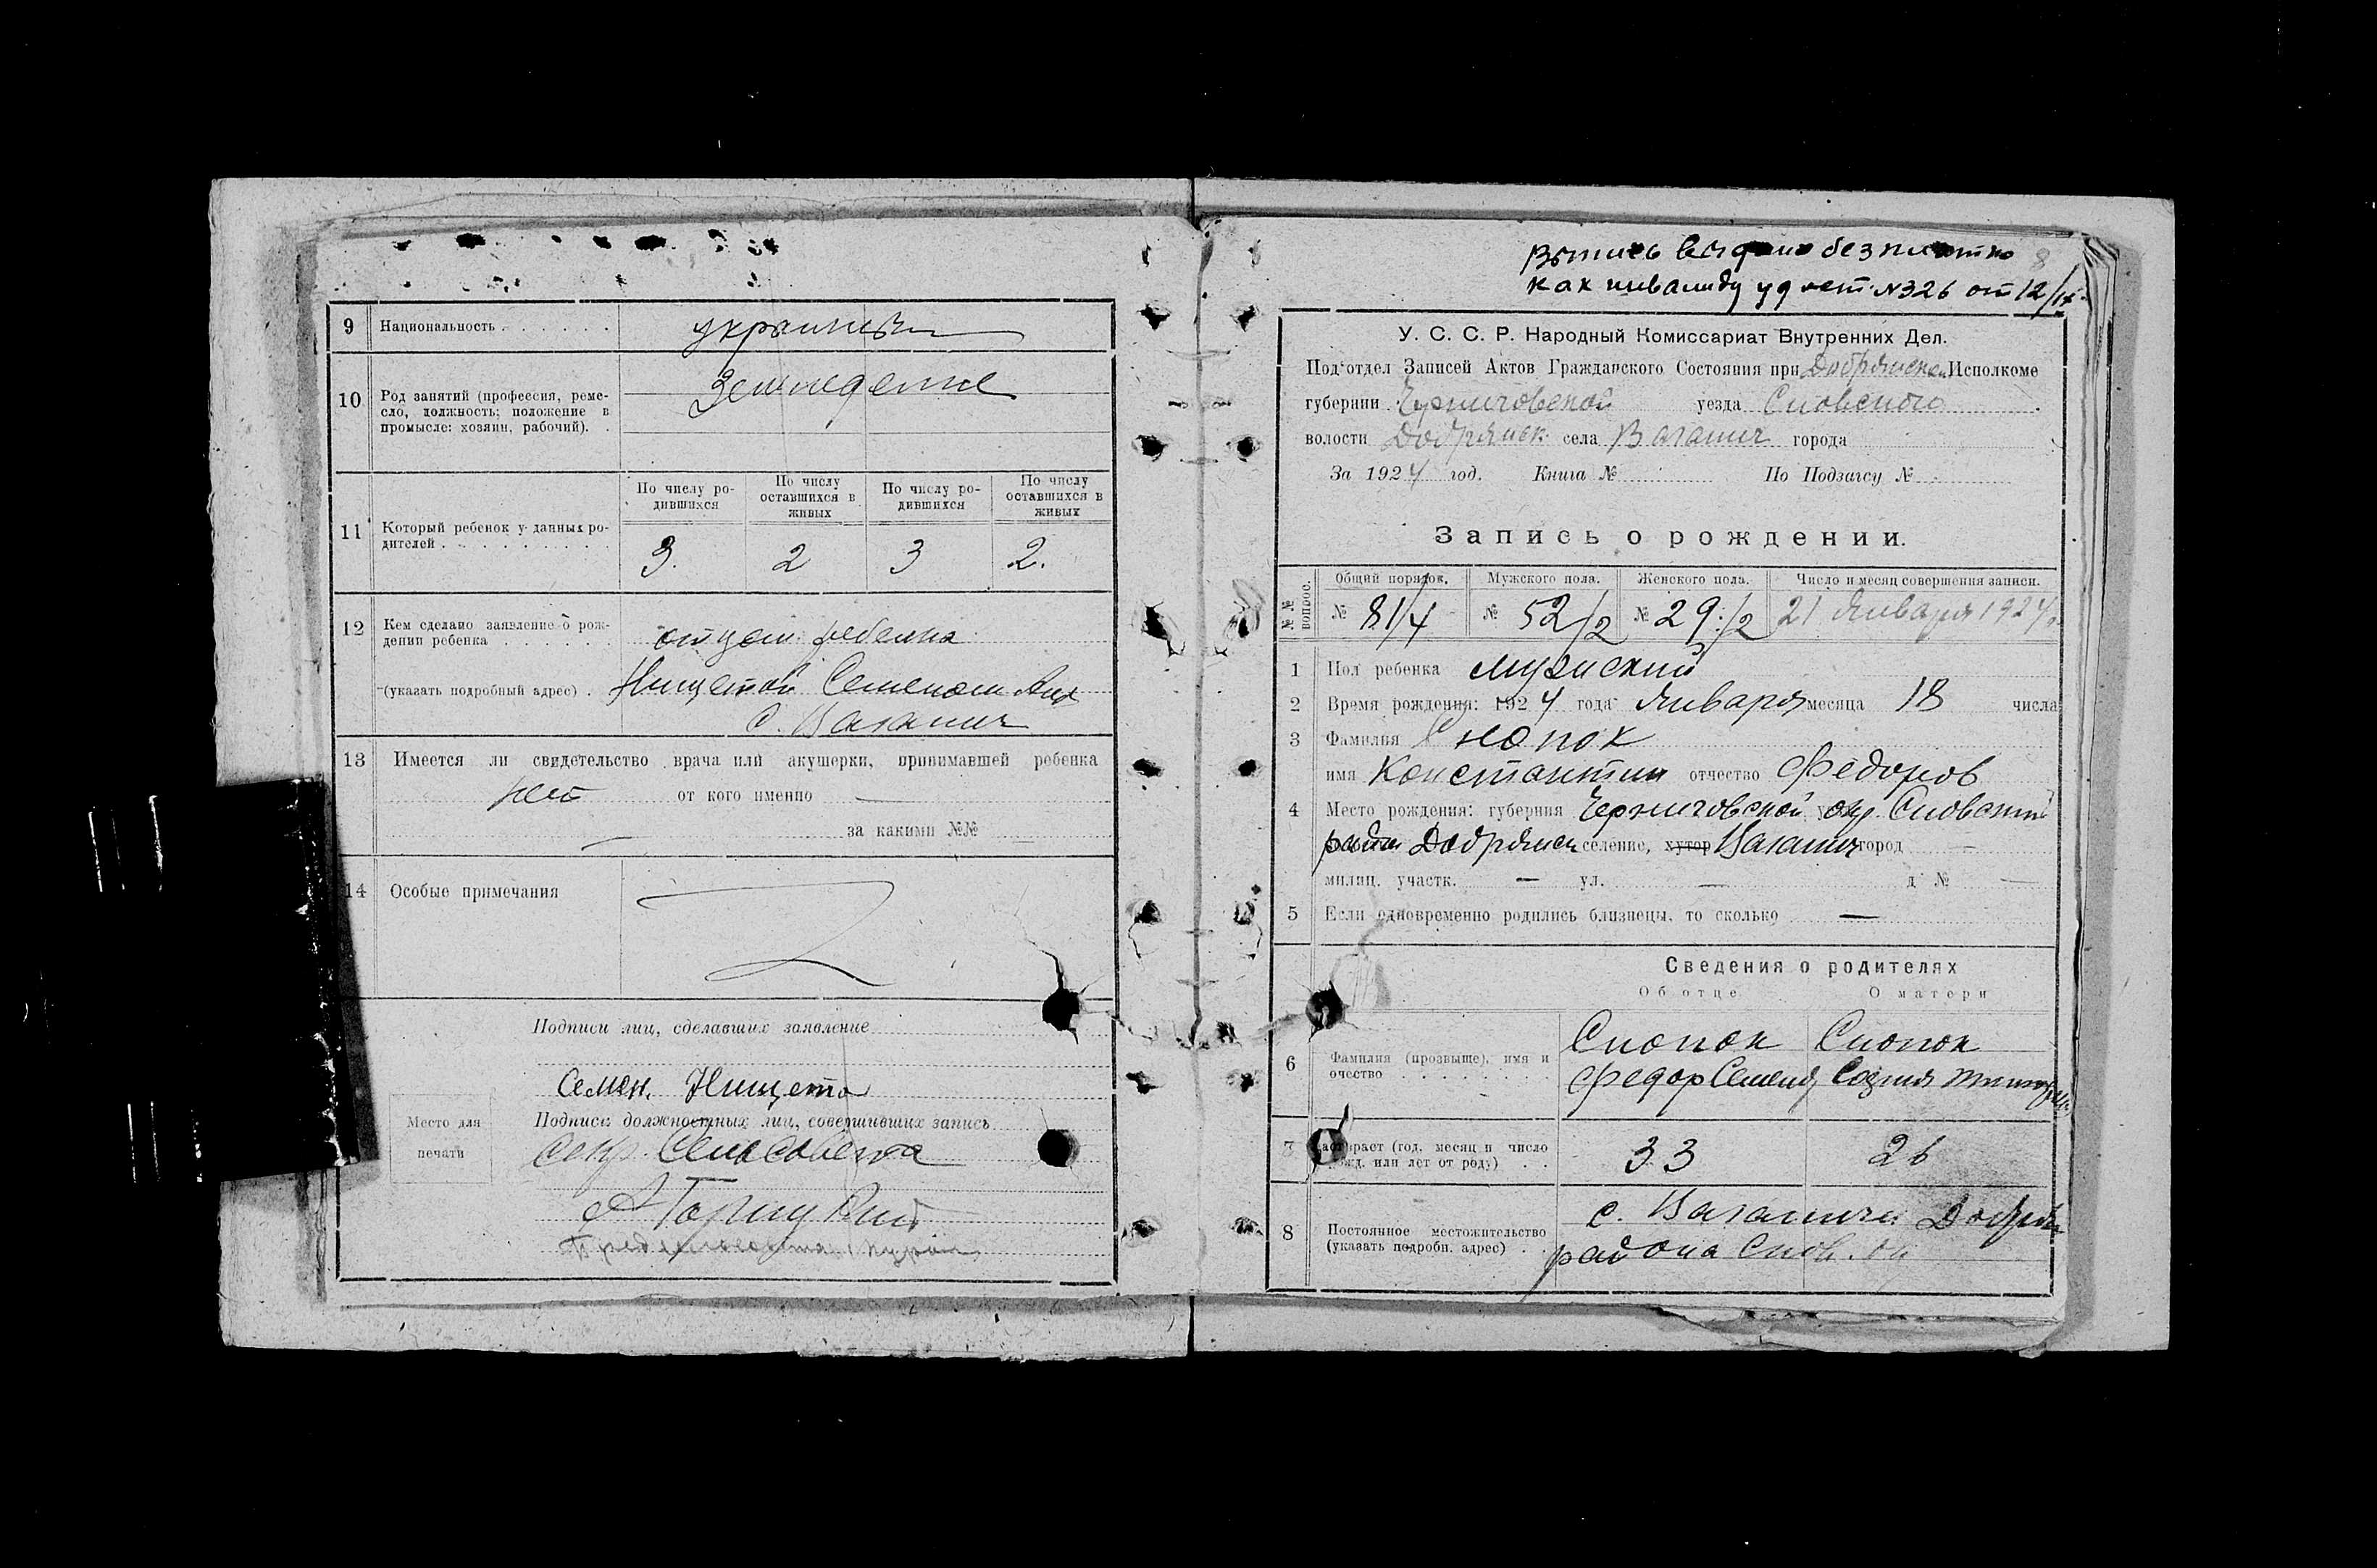 9 Национальность
украинцы
10 Род занятий (профессия, реме-
сло, должность: положение в
промысле: хозяин, рабочий).
Земледелие
11 Который ребенок у данных ро-
дителей
По числу ро-
дившихся
По числу
оставшихся в
живых
По числу ро-
дившихся
По числу
оставшихся в
живых
3. 2 3 2.
12 Кем сделано заявление о рож-
дении ребенка
отцом ребенка
(указать подробный адрес) . Нищетой Семеном
с.
13 Имеется ли свидетельство врача или акушерки, принимавшей ребенка
нет от кого именно —
— за какими №№ —
14 Особые примечания
Подписи лиц, сделавших заявление
Семен. Нищета
Место для
печати
Подписи должностных лиц, совершивших запись
секр. Сельсовета
Выпись выдана безплатно
как инвалиду уд №326 от 12/
8
У. С. С. Р. Народный Комиссариат Внутренних Дел.
Под‘отдел Записей Актов Гражданского Состояния при Добрянском Исполкоме
губернии Черниговской уезда Сновского
волости Добрянск. села Ваганич города
За 1924 год. Книга № По Подзагсу №
Запись о рождении.
№№ вопрос.
Общий порядок. Мужского пола. Женского пола. Число и месяц совершения записи.
№ 81/4 № 52/2 № 29/2 21 Января 1924
1 Пол ребенка мужский
2 Время рождения: 1924 года Января месяца 18 числа
3 Фамилия Снопок
имя Константин отчество Федоров
4 Место рождения: губерния Черниговской окр. Сновский
район Добрянск селение, хутор Ваганич город —
милиц. участк. — ул. — д № —
5 Если одновременно родились близнецы, то сколько —
Сведения о родителях
Об отце О матери
6 Фамилия (прозвище), имя и
очество
Снопок Снопок
Федор Семенов София
7 Возраст (год, месяц и число
рожд. или лет от роду)
33 26
8 Постоянное местожительство
(указать подробн. адрес)
с. Ваганичи Добрян
района Снов. ок